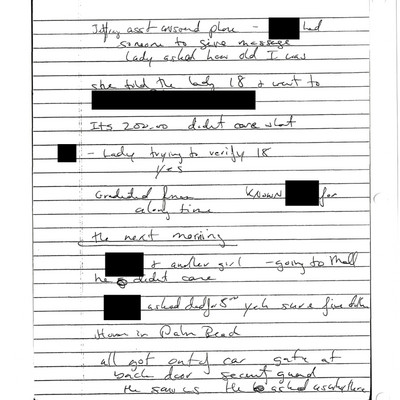 Jeffrey asst answered phone - had
someone to give message
Lady asked how old I was
she told the lady 18 & went to
Its 200.00 didnt care what
- Lady trying to verify 18
yes
Graduated from KNOWN for
a long time
the next morning
& another girl - going to Mall
he didnt care
asked dad for 5 yeh sure five
Home in Palm Beach
all got out of car gate at
back door security guard
he saw us he asked